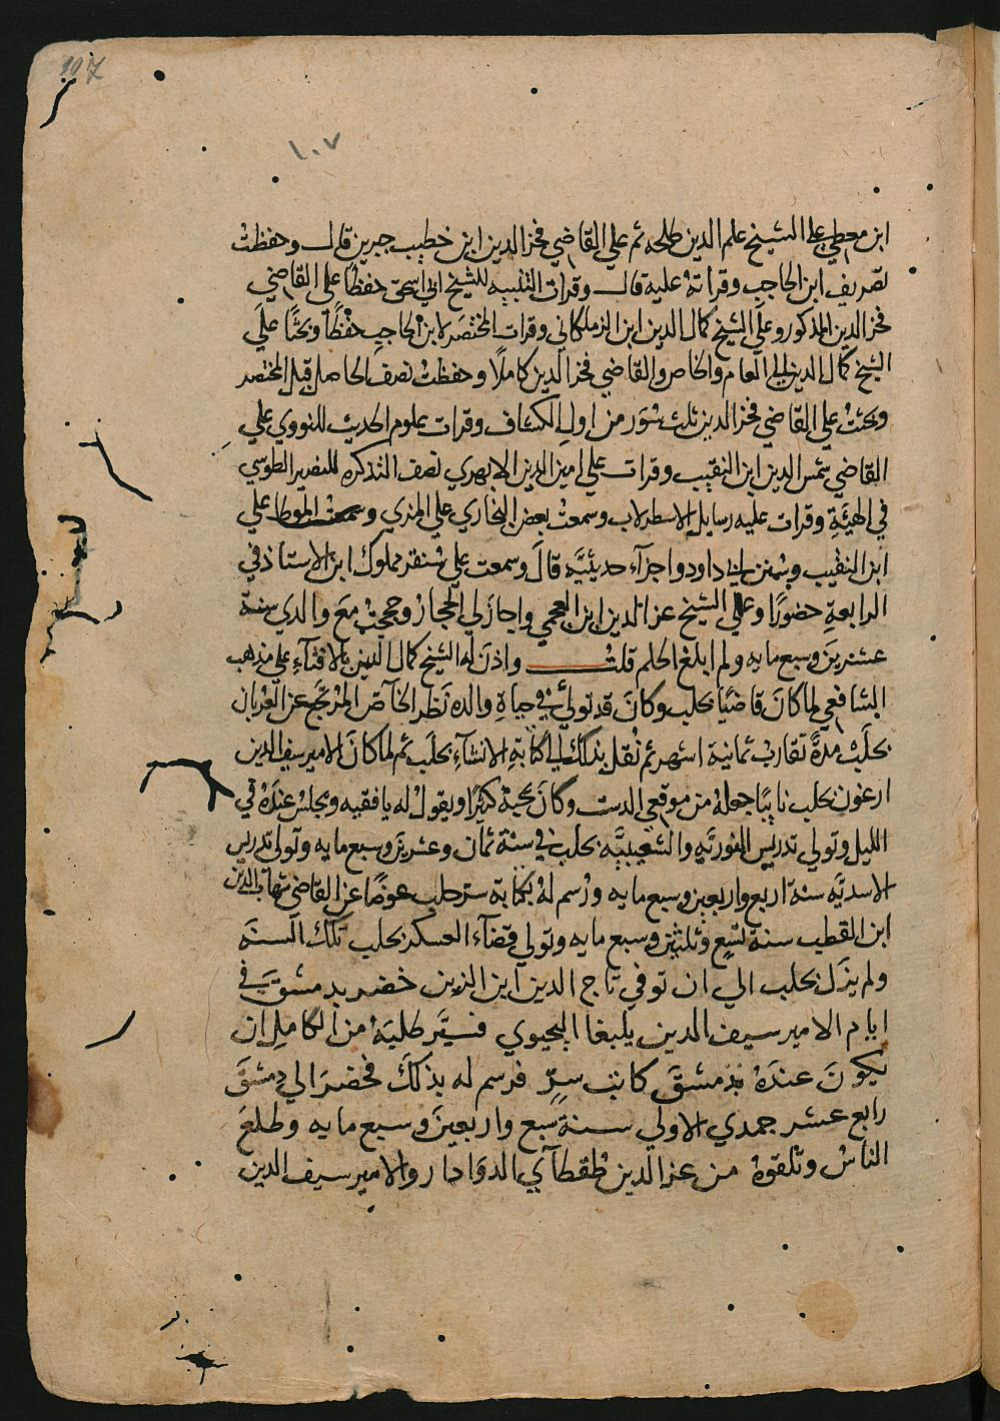 107
١٠٧
ابن معطي على الشيخ علم الدين طلحه ثم علي القاضي فخر الدين ابن خطيب جبرين قال وحفظت
تصريف ابن الحاجب وقراته عليه قال وقرات التنبيه للشيخ ابي اسحق حفظا على القاضي
فخر الدين المذكور وعلى الشيخ كمال الدين ابن الزملكاني وقرات المختصر لابن الحاجب حفظاً وبحثًا علَي
الشيخ كمال الدين الي العام والخاص والقاضي فخر الدين كاملًا وحفظت نصف الحاصل قبل المختصر
وبحثت علي القاضي فخر الدين ثلث سور من اول الكشاف وقرات علوم الحديث للنووي علي
القاضي شمس الدين ابن النقيب وقرات علي امين الدين الابهري نصف التذكره للنصير الطوسي
في الهيئَةِ وقرات عليه رسايل الاسطرلاب وسمعت بعض البخاري علي المزي وسمعت الموطا علي
ابن النقيب وسُنن ابي داود واجزآء حديثيَّه قالَ وسمعت علي سُنقر مملوك ابن الاستاذ في
الرابعةِ حضورًا وعلي الشيخ عز الدين ابن العجمي واجاز لي الحجار وحججت مع والدي سنة
عشرينَ وسبع مايه ولم ابلغ الحلم قلت واذنَ له الشيخ كمال الدين بالافتآءِ علي مذهب
الشافعي لما كانَ قاضيًا بحلب وكانَ قد تولي في حياةِ والده نَظر الخاص المرتجع عن العربان
بحلَبْ مدةً تقارب ثمانية اشهر ثم نُقل بذلك الي كتابةِ الانشآءِ بحلَب ثم لما كانَ الامير سيف الدين
ارغون بحلب نايبًا جعلهُ من موقعي الدست وكانَ يحبه كثيرًا ويقول له يا فقيه ويجلس عندَهُ في
الليل وتولي تدريس النوريَّةِ والشعيبيَّه بحلب في سنة ثمان وعشرين وسبع مايه وتولي تدريس
الاسديَّه سنة اربع واربعين وسبع مايه ورُسم لهُ بكتابة سر حلب عوضًا عن القاضي شهاب الدين
ابن القطب سنة تسع وثلثين وسبع مايه وتولي قضآءَ العسكر بحلب تلك السنَه
ولم يزَل بحلب الي ان توفي تاج الدين ابن الزين خضر بدمشقَ في
ايام الامير سيف الدين يلبغا اليحيوي فسيَّر طلبَهُ من الكاملِ ان
يكونَ عندَهُ بدمشقَ كاتب سرٍّ فرسم له بذلكَ فحضرَ الي دمشقَ
رابع عشر جمدي الاولي سنة سبع واربعينَ وسبع مايه وطلعَ
الناسُ وتلقوهُ من عز الدين طقطآي الدوَادار والامير سيف الدين